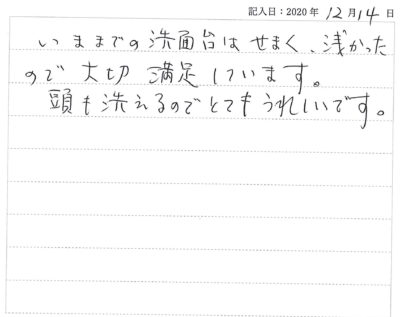 記入日：2020年 12月14日
いままでの洗面台はせまく、浅かった
ので大切満足しています。
頭も洗えるのでとてもうれしいです。